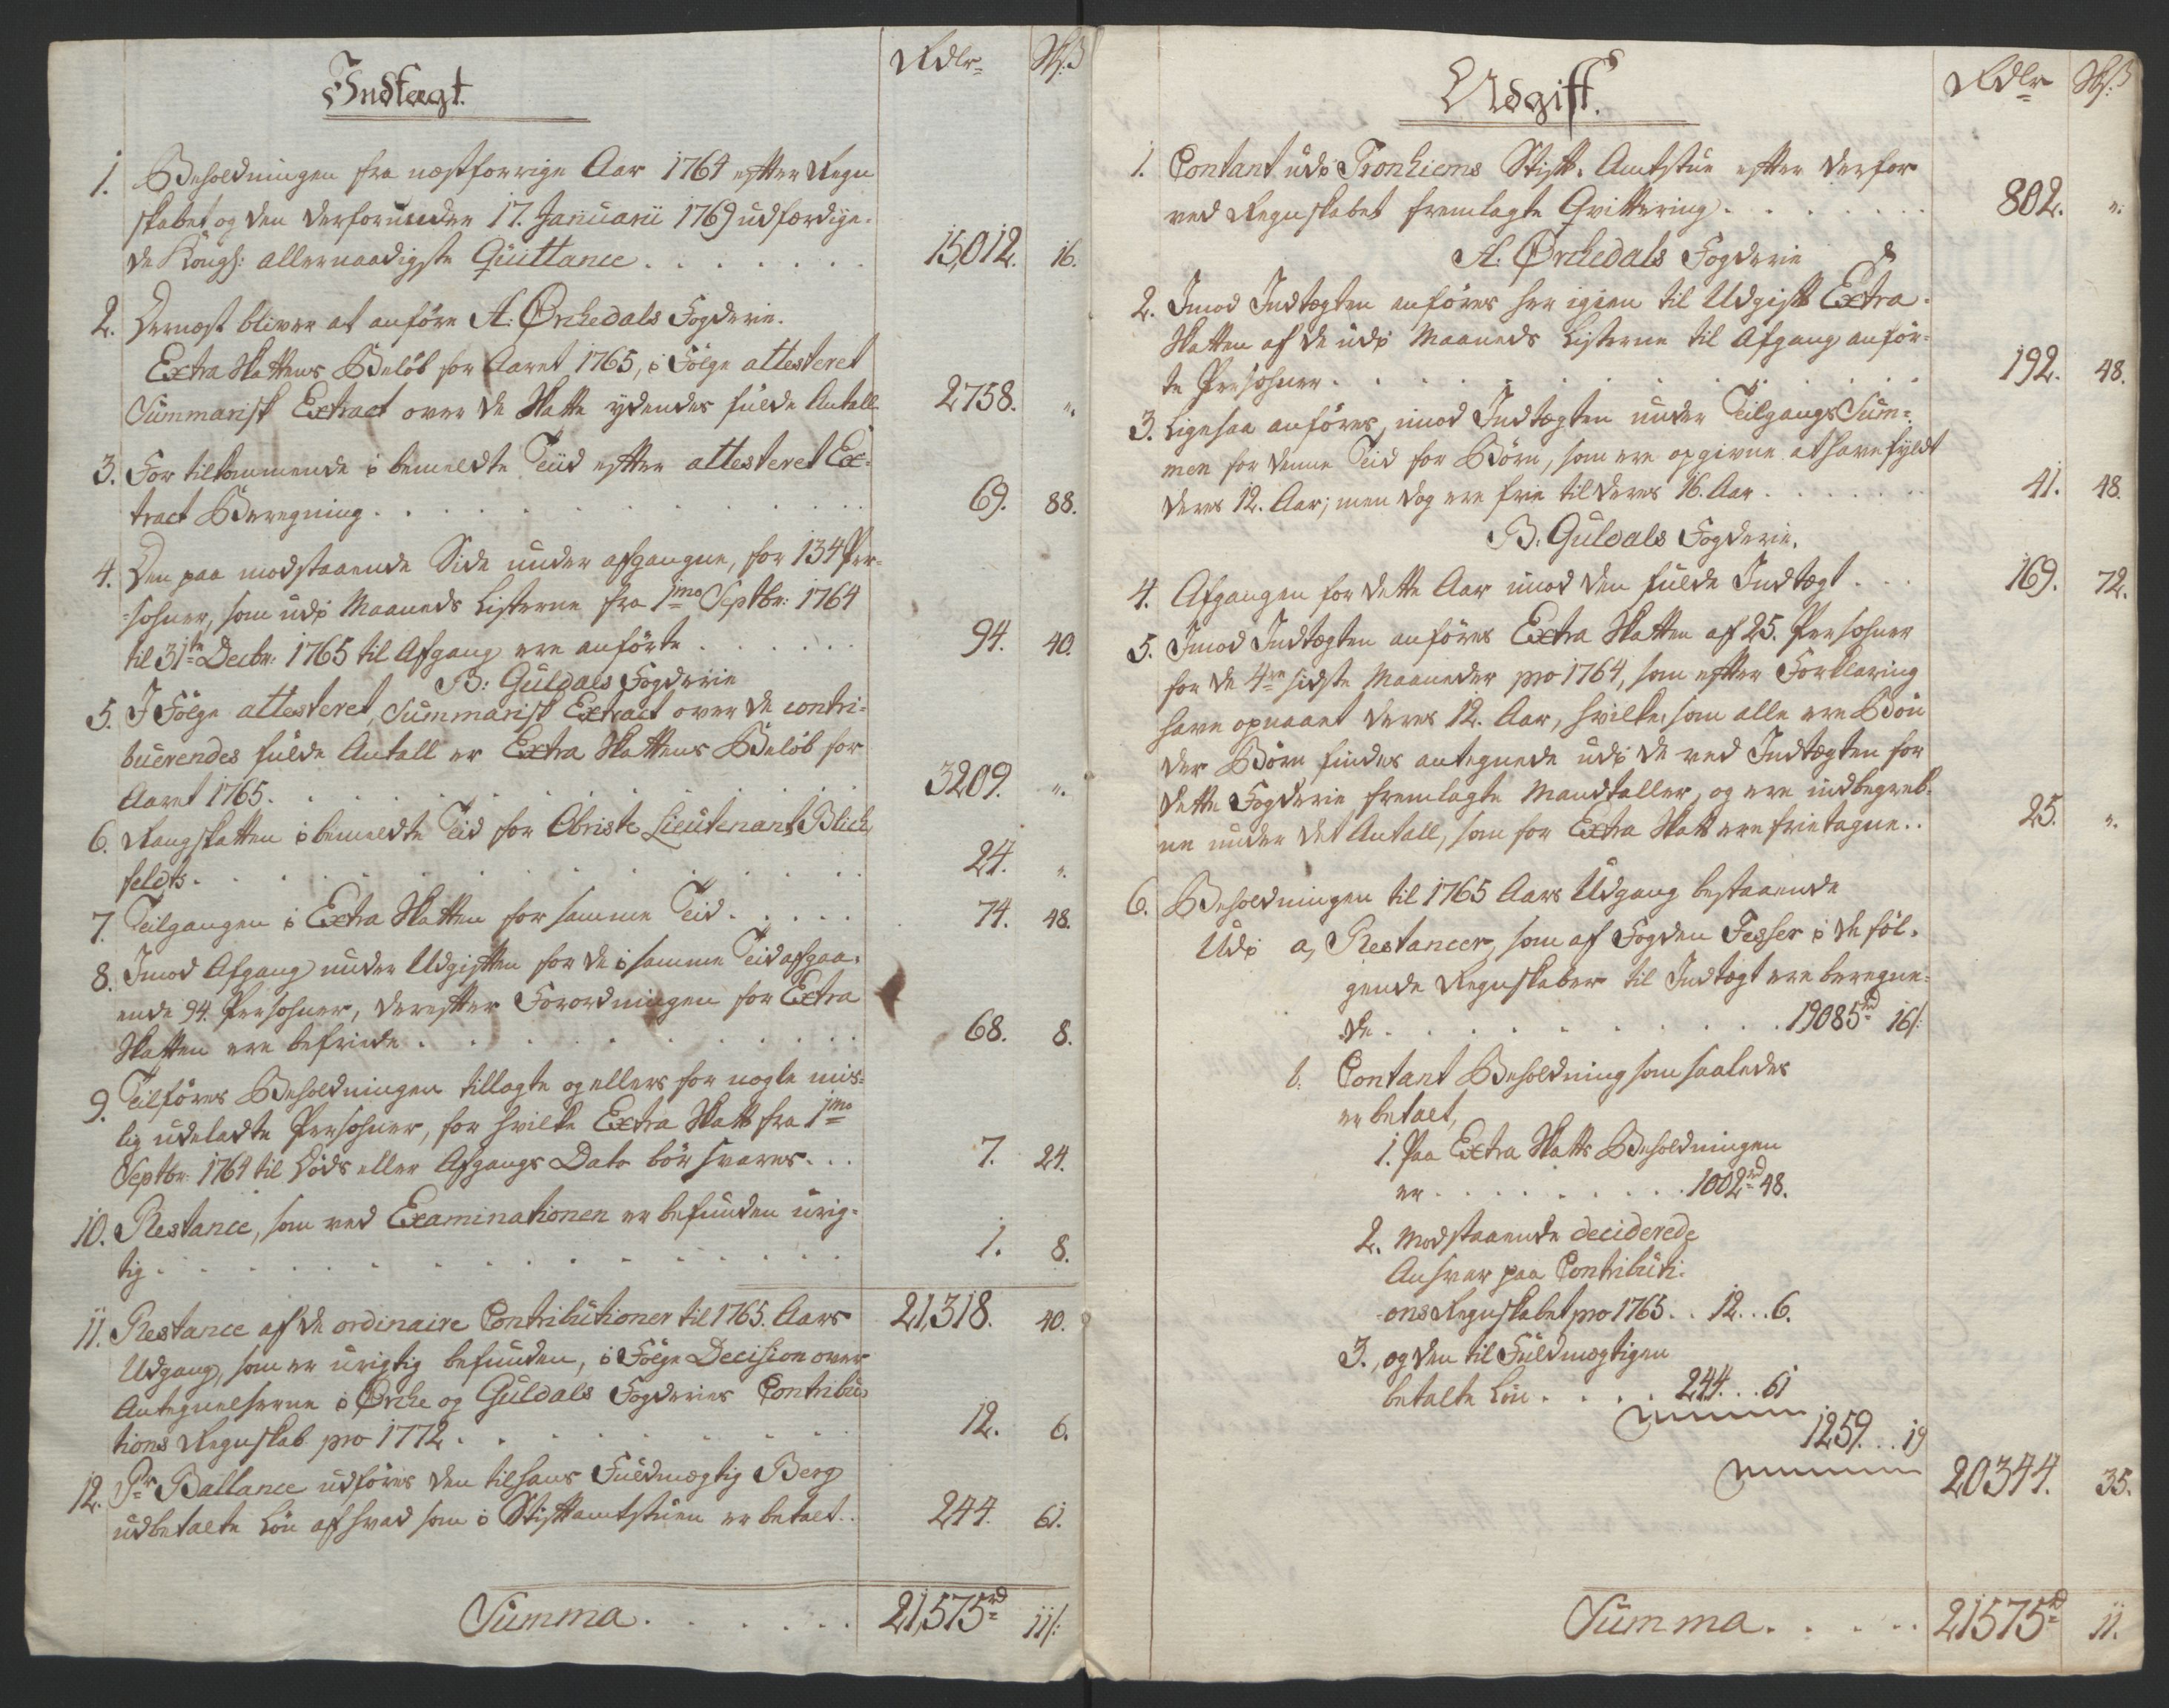 Indtægt.
Rdlr
Sk:ß
1. Beholdningen fra næstforrige Aar 1764 efter Regn
skabet og den derfor under 17. Januarii 1769 udfærdige-
de Kongl: allernaadigste Quittance . . . . . . . 15,012. 16.
2. Dernæst bliver at anföre A: Örchedals Fogderie.
Extra Skattens Belöb for Aaret 1765, i Fölge attesteret
Summarisk Extract over de Skatte ydendes fulde Antall 2758. ".
3. For tilkommende i bemeldte Tiid efter attesteret Ex-
tract Beregning . . . . . . . . . . 69. 88.
4. Den paa modstaaende Side under afgangne, for 134 Per-
-sohner, som udi Maaneds Listerne fra 1mo Septbr: 1764
til 31te Decbr: 1765 til Afgang ere anförte . . . . . . 94. 40.
B: Guldals Fogderie
5. I Fölge attesteret, Summarisk Extract over de contri-
buerendes fulde Antall er Extra Skattens Belöb for
Aaret 1765. . . . . . . . . . . 3209. ".
6. Rangskatten i bemeldte Tid for Obriste Lieutenant Blich
feldts . . . . . . . . . . . 24. ".
7. Tilgangen i Extra Skatten for samme Tid . . . . . 74. 48.
8. Imod Afgang under Udgiften for de i samme Tid afgaa-
ende 94. Persohner, derefter Forordningen for Extra
Skatten ere befriede . . . . . . . . . 68. 8.
9. Tilföres Beholdningen tillagte og ellers for nogle mis-
lig udeladte Persohner, for hvilke Extra Skatt fra 1mo
Septbr: 1764 til Döds eller Afgangs Dato bör svares . . . 7. 24.
10. Restance, som ved Examinationen er befunden urig-
tig . . . . . . . . . . . 1. 8.
21,318. 40.
11. Restance af de ordinaire Contributioner til 1765. Aars
Udgang, som er urigtig befunden, i Fölge Decision over
Antegnelserne i Örche og Guldals Fogderies Contribu-
tions Regnskab pro 1772 . . . . . . . . 12. 6.
12. Pr Ballance udföres den til hans Fuldmægtig Berg
udbetalte Lön af hvad som i Stiftamtstuen er betalt . . 244. 61.
Summa . . . . . . 21,575rd 11ß:
Udgift.
Rdlr
Sk:ß
1. Contant udi Tronhiems Stift. Amtstue efter derfor
ved Regnskabet fremlagte Qvittering . . . . . . . 802. ".
A: Örchedals Fogderie
2. Imod Indtægten anföres her igien til Udgift Extra
Skatten af de udi Maaneds Listerne til Afgang anför-
te Persohner . . . . . . . . . . 192. 48.
3. Ligesaa anföres, imod Indtægten under Tilgangs Sum-
men for denne Tid for Börn, som ere opgivne at have fyldt
deres 12. Aar; men dog ere frie til deres 16. Aar . . . . . . 41. 48.
B: Guldals Fogderie.
4. Afgangen for dette Aar imod den fulde Indtægt . . . 169. 72.
5. Imod Indtægten anföres Extra Skatten af 25. Persohner
for de 4re sidste Maaneder pro 1764, som efter Forklaring
have opnaaet deres 12. Aar, hvilke, som alle ere Bön
der Börn findes antegnede udi de ved Indtægten for
dette Fogderie fremlagte Mandtaller, og ere indbegreb-
ne under det Antall, som for Extra Skatt ere frietagne . . 25. ".
6. Beholdningen til 1765 Aars Udgang bestaaende
Udi a, Restancer, som af Fogden Fesser i de föl-
gende Regnskaber til Indtægt ere beregne-
de . . . . . . . . . 19085rd 16ß:
b: Contant Beholdning som saaledes
er betalt,
1. Paa Extra Skatts Beholdningen
er . . . . . . . . 1002rd 48.
2. Modstaaende deciderede
Ansvar paa Contributi-
-ons Regnskabet pro 1765 . . 12 . . 6.
3., og den til Fuldmægtigen
betalte Lön . . . . 244 . . 61
1259. . . 19
20344. 35.
Summa . . . . . 21575rd 11.